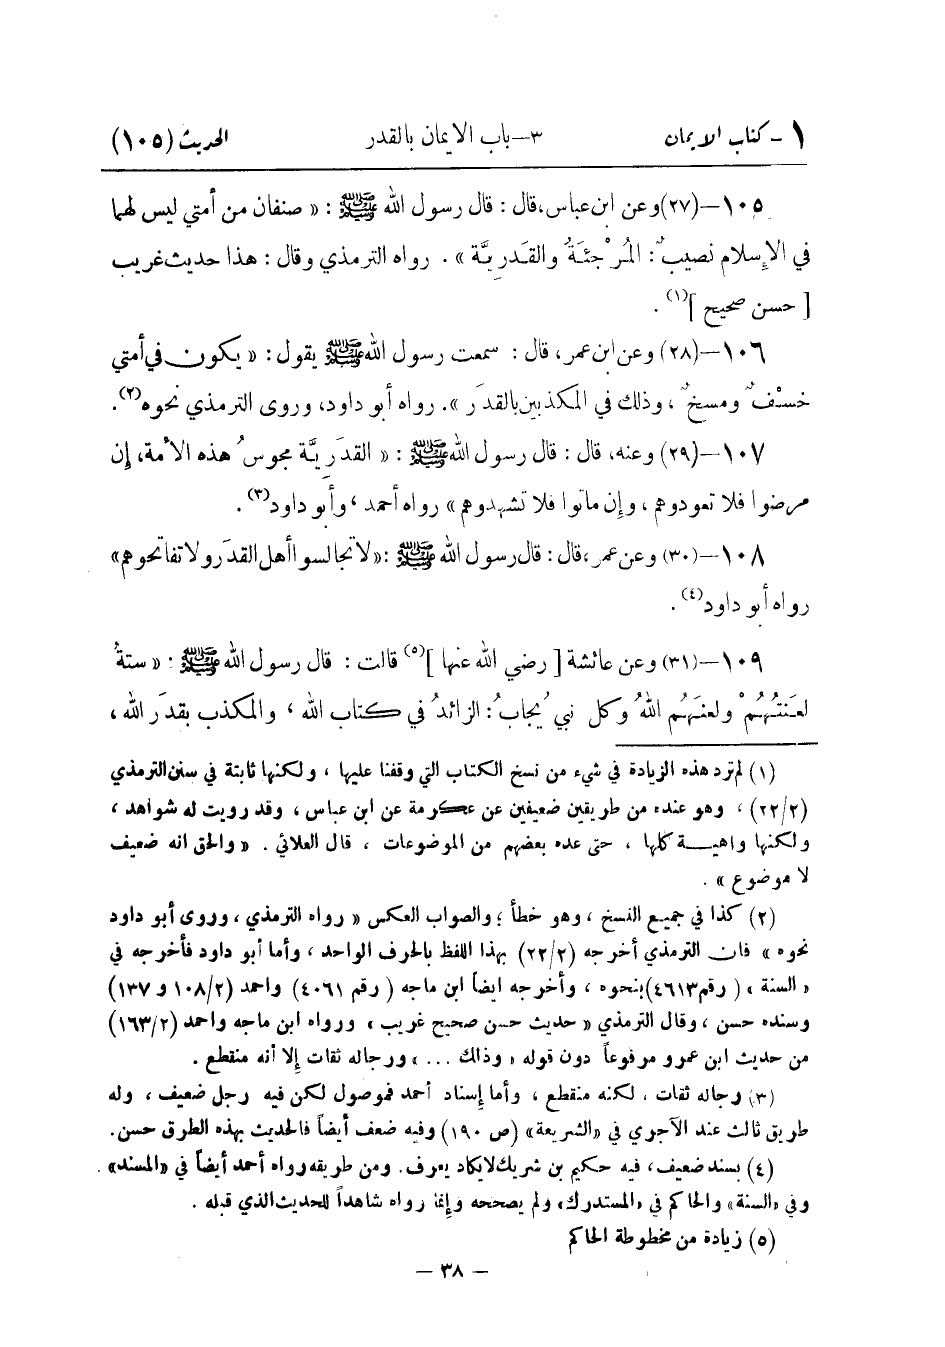 ١ - كتاب الايمان ٣-باب الايمان بالقدر الحديث (١٠٥)
١٠٥-(٢٧) وعن ابن عباس، قال : قال رسول الله ﷺ : « صنفان من أمتي ليس لهما
في الإسلام نصيبٌ : المُرْجئَةُ والقَدَريَّة » . رواه الترمذي وقال : هذا حديث غريب
[ حسن صحيح ](١) .
١٠٦-(٢٨) وعن ابن عمر، قال : سمعت رسول الله ﷺ يقول : « يكون في أمتي
خسْفٌ ومسخٌ ، وذلك في المكذبين بالقدَر ». رواه أبو داود، وروى الترمذي نحوه(٢).
١٠٧-(٢٩) وعنه، قال : قال رسول الله ﷺ : « القدَريَّة مجوسُ هذه الأمة، إن
مرضوا فلا تعودوهم ، وإن ماتوا فلا تشهدوهم » رواه أحمد ، وأبو داود(٣) .
١٠٨-(٣٠) وعن عمر ،قال : قال رسول الله ﷺ :«لا تجالسوا أهل القدَر ولا تفاتحوهم»
رواه أبو داود(٤) .
١٠٩-(٣١) وعن عائشة [ رضي الله عنها ](٥) قالت : قال رسول الله ﷺ : « ستةٌ
لعَنتُهُمْ ولعنَهُم اللهُ وكل نبي يُجابُ : الزائدُ في كتاب الله ، والمكذب بقدَر الله ،
(١) لم ترد هذه الزيادة في شيء من نسخ الكتاب التي وقفنا عليها ، ولكنها ثابتة في سنن الترمذي
(٢٢/٢) ، وهو عنده من طريقين ضعيفين عن عكرمة عن ابن عباس ، وقد رويت له شواهد ،
ولكنها واهيــة كلها ، حتى عده بعضهم من الموضوعات ، قال العلائي . « والحق انه ضعيف
لا موضوع » .
(٢) كذا في جميع النسخ ، وهو خطأ ؛ والصواب العكس « رواه الترمذي ، وروى أبو داود
نحوه » فان الترمذي أخرجه (٢٢/٢) بهذا اللفظ بالحرف الواحد ، وأما أبو داود فأخرجه في
« السنة » ( رقم ٤٦١٣)بنحوه ، وأخرجه ايضاً ابن ماجه ( رقم ٤٠٦١) واحمد (١٠٨/٢ و ١٣٧)
وسنده حسن ، وقال الترمذي « حديث حسن صحيح غريب » ورواه ابن ماجه واحمد (١٦٣/٢)
من حديث ابن عمرو مرفوعاً دون قوله « وذلك ... » ورجاله ثقات إلا أنه منقطع .
(٣) رجاله ثقات ، لكنه منقطع ، وأما إسناد أحمد فموصول لكن فيه رجل ضعيف ، وله
طريق ثالث عند الآجري في «الشريعة» (ص ١٩٠) وفيه ضعف أيضاً فالحديث بهذه الطرق حسن.
(٤) بسند ضعيف، فيه حكيم بن شريك لايكاد يعرف. ومن طريقه رواه أحمد أيضاً في «المسند» .
وفي «السنة» والحاكم في «المستدرك» ولم يصححه وإنما رواه شاهداً للحديث الذي قبله .
(٥) زيادة من مخطوطة الحاكم
— ٣٨ —